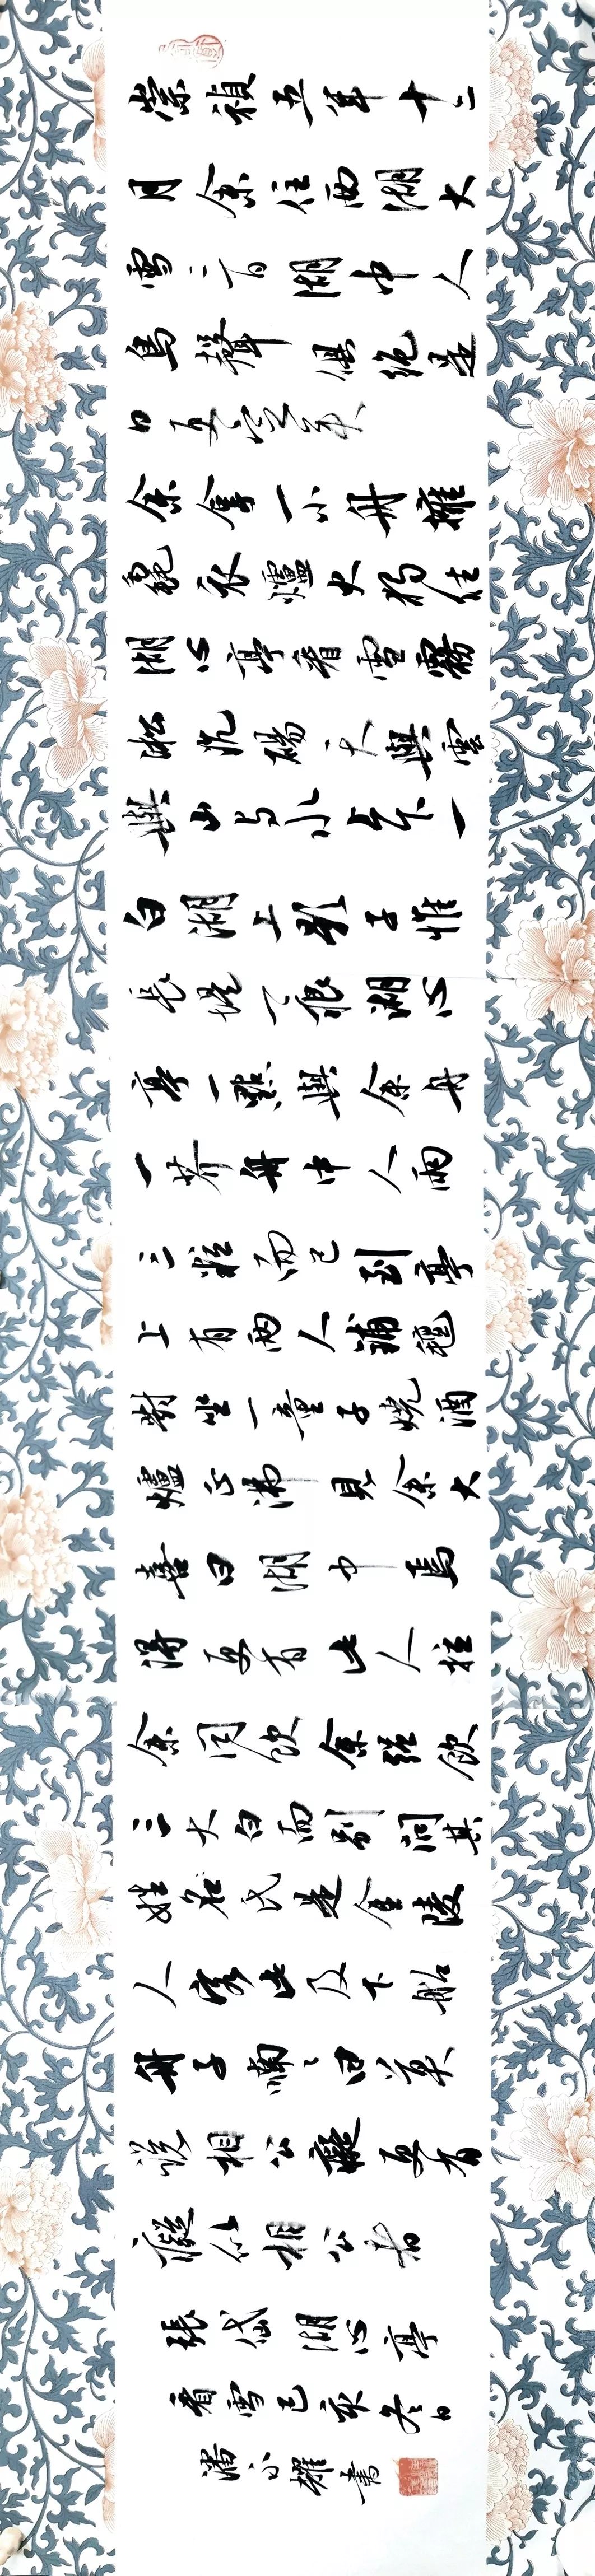 崇禎五年十二
月余住西湖大
雪三日湖中人
鳥聲俱絕是
日更定矣
余拿一小舟擁
毳衣爐火獨往
湖心亭看雪霧
淞沆碭天與雲
與山与水上下一
白湖上影子惟
長堤一痕湖心
亭一點與余舟
一芥舟中人兩
三粒而已到亭
上有兩人鋪氈
對坐一童子燒酒
爐正沸見余大
喜曰湖中焉
得更有此人拉
余同飲余強飲
三大白而別問其
姓名氏是金陵
人客此及下船
舟子喃々曰莫
說相公癡更有
癡似相公者
張岱湖心亭
看雪己亥冬日
潘小耀書